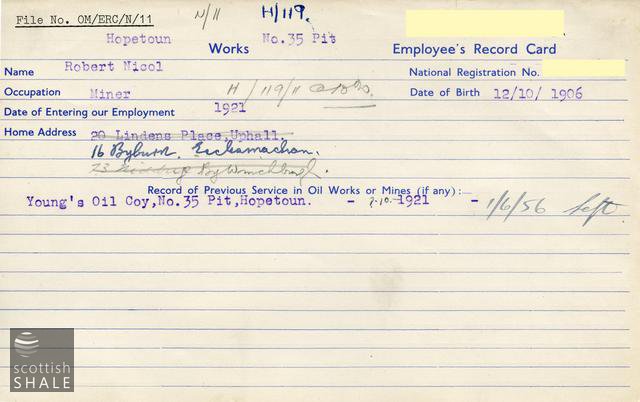 File No. OM/ERC/N/11 N/11 H/119.
Hopetoun Works No.35 Pit Employee's Record Card
Name Robert Nicol National Registration No.
Occupation Miner H/119/11 Date of Birth 12/10/1906
Date of Entering our Employment 1921
Home Address 20 Lindens Place, Uphall.
16 Byburn. Ecclesmachan.
Record of Previous Service in Oil Works or Mines (if any):—
Young's Oil Coy, No.35 Pit, Hopetoun. - 7.10.1921 - 1/6/56 Left
scottish
SHALE